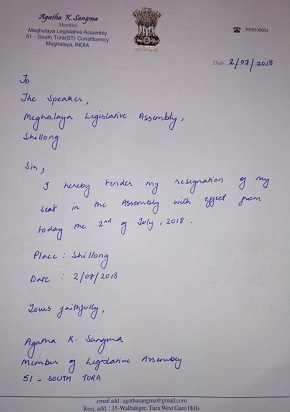 Agatha K. Sangma
Member
Meghalaya Legislative Assembly
51 - South Tura(ST) Constituency
Meghalaya, INDIA
Date 2/07/2018
To
The Speaker,
Meghalaya Legislative Assembly,
Shillong
Sir,
I hereby tender my resignation of my
seat in the Assembly with effect from
today the 2nd of July, 2018.
Place : Shillong
Date : 2/07/2018
Yours faithfully,
Agatha K. Sangma
Member of Legislative Assembly
51 - SOUTH TURA
email add : agathasangma@gmail.com
Resd. add : 35-Walbakgre, Tura West Garo Hills